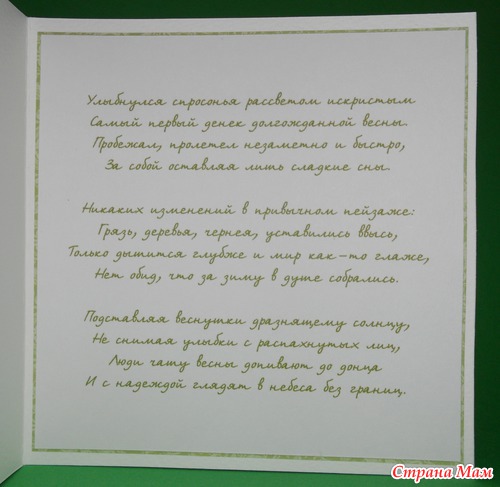 Улыбнулся спросонья рассветом искристым
Самый первый денек долгожданной весны.
Пробежал, пролетел незаметно и быстро,
За собой оставляя лишь сладкие сны.
Никаких изменений в привычном пейзаже:
Грязь, деревья, чернея, уставились ввысь,
Только дышится глубже и мир как-то глаже,
Нет обид, что за зиму в душе собрались.
Подставляя веснушки дразнящему солнцу,
Не снимая улыбки с распахнутых лиц,
Люди чашу весны допивают до донца
И с надеждой глядят в небеса без границ.
Страна Мам